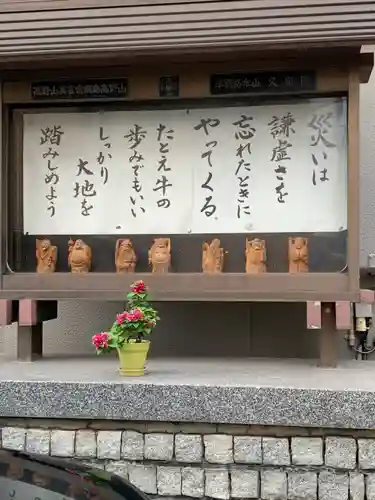 災いは
謙虚さを
忘れたときに
やってくる
たとえ牛の
歩みでもいい
しっかり
大地を
踏みしめよう